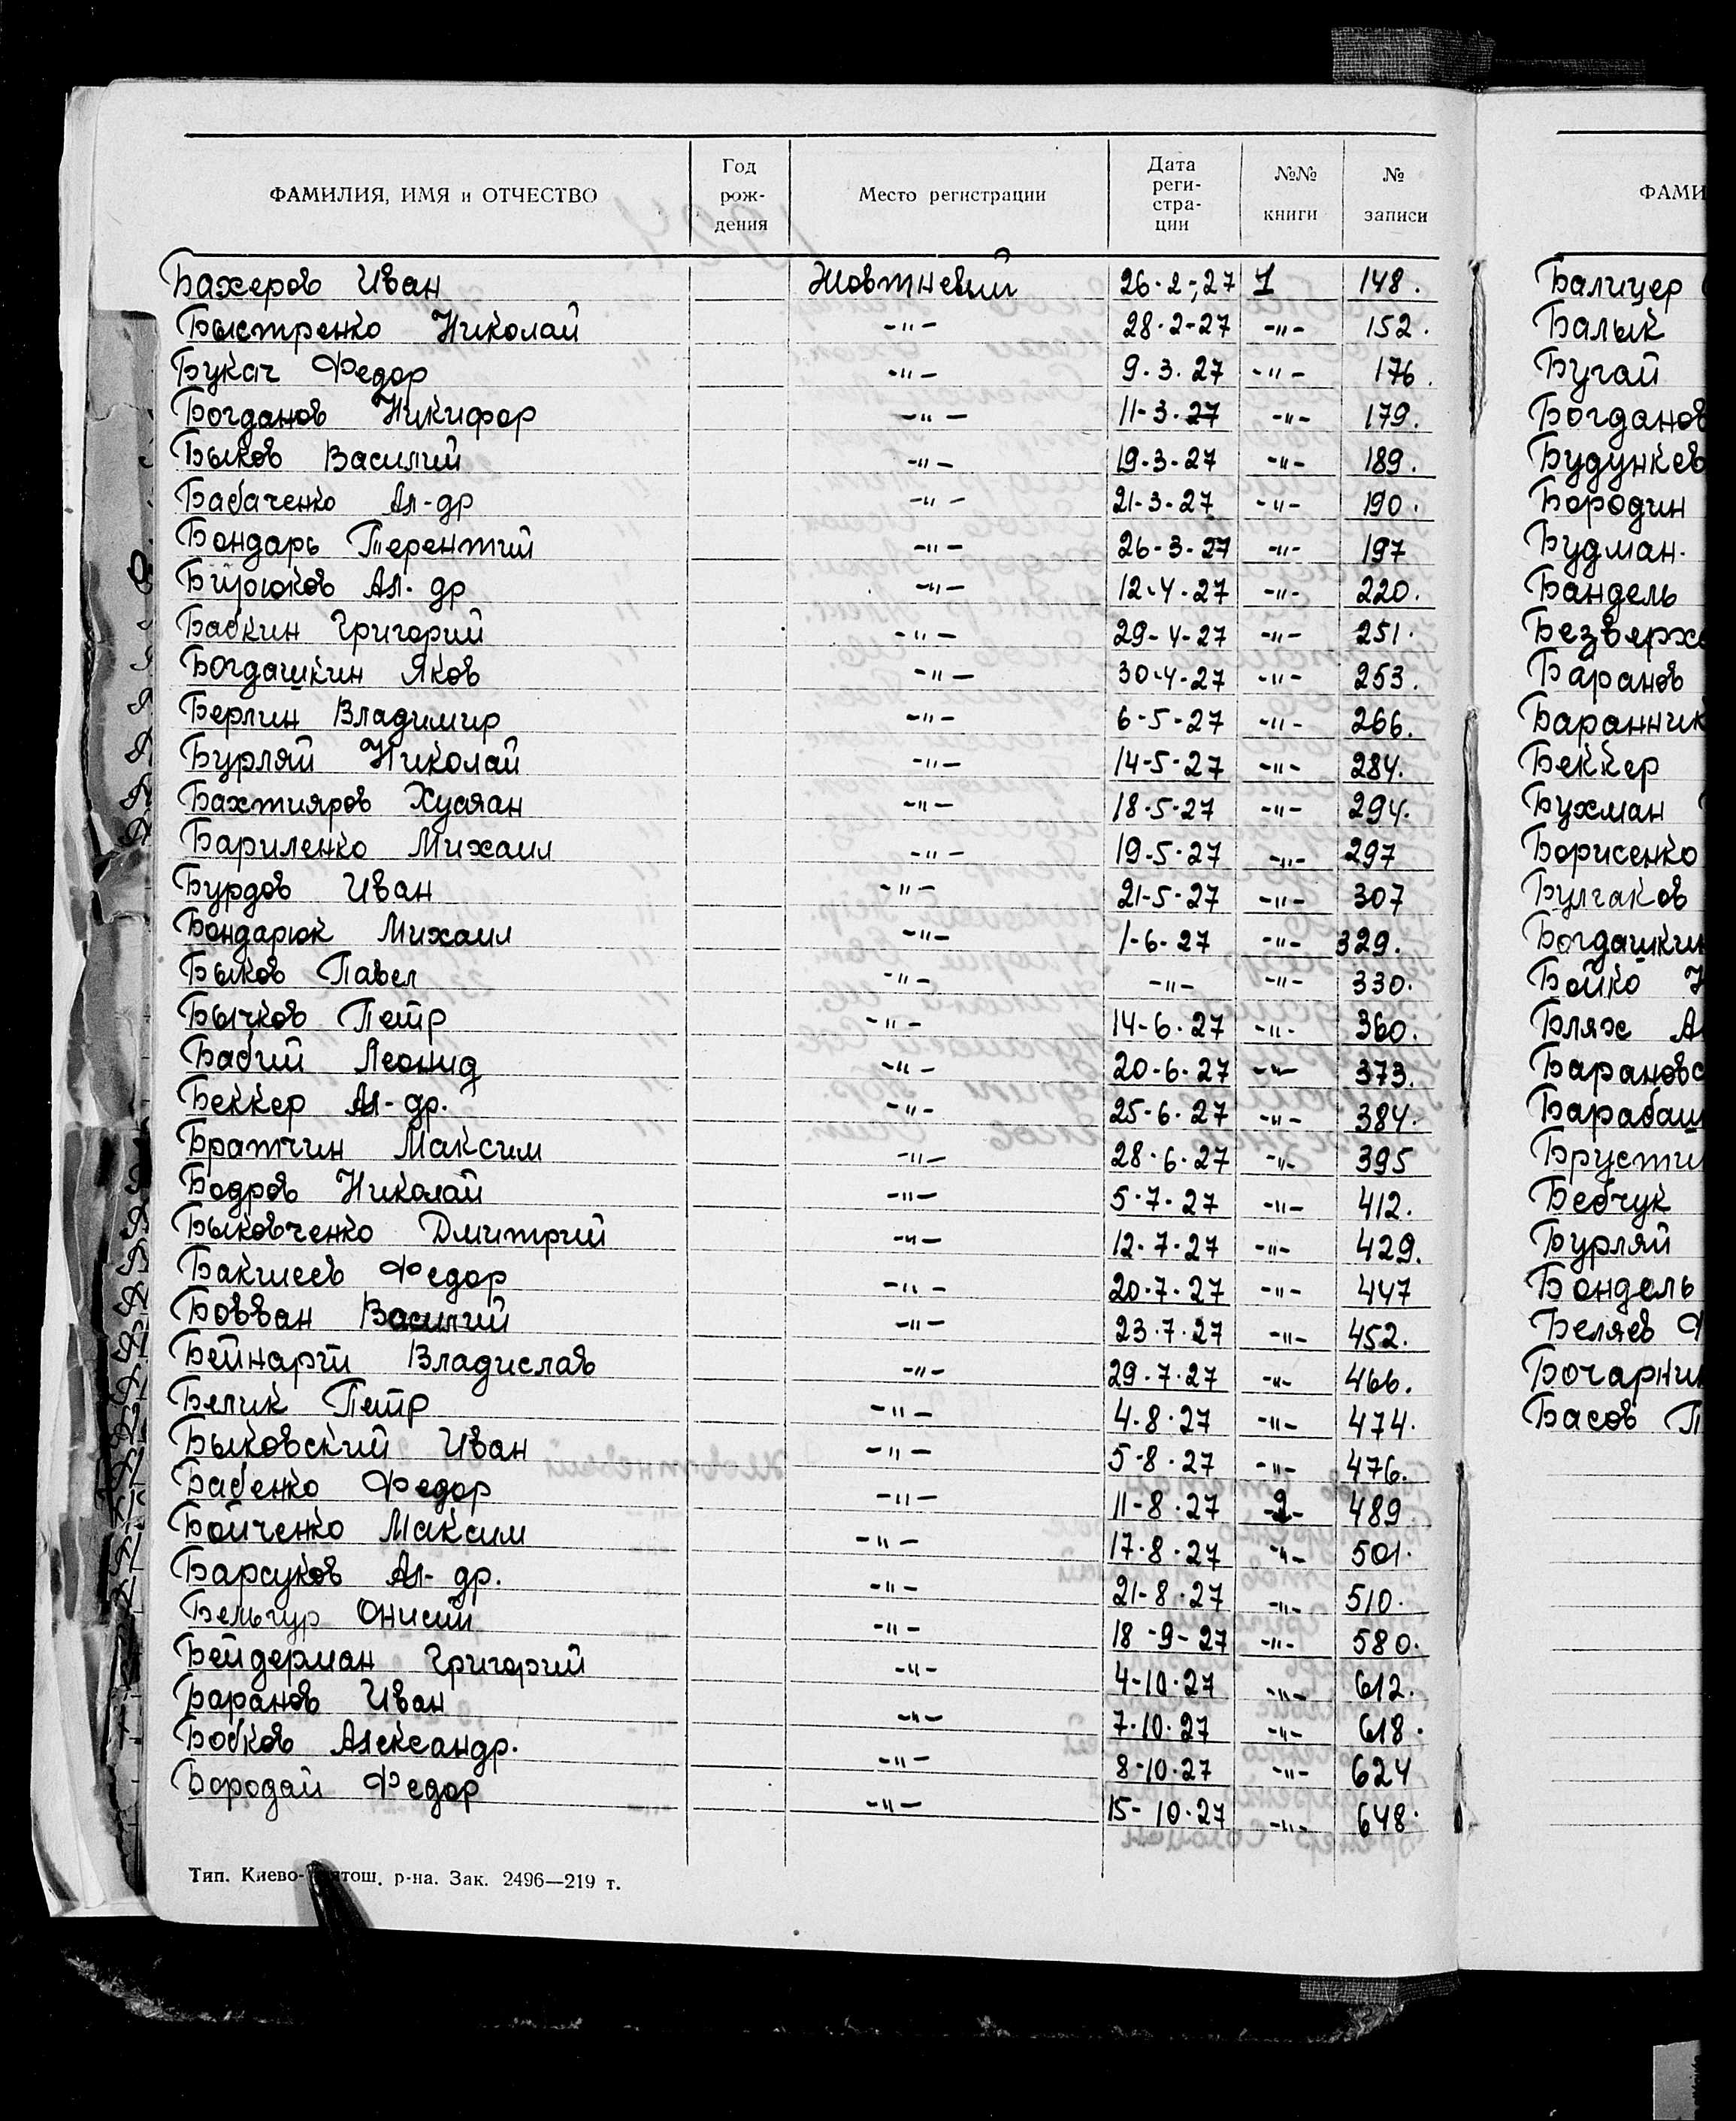 ФАМИЛИЯ, ИМЯ и ОТЧЕСТВО Год рож-дения Место регистрации Дата реги-стра-ции №№ книги № записи
Бахеров Иван Жовтневий 26·2-,27 1 148.
Быстренко Николай -"- 28·2-27 -"- 152.
Букач Федор -"- 9·3·27 -"- 176.
Богданов Никифор -"- 11-3·27 -"- 179.
Быков Василий -"- 19·3-27 -"- 189.
Бабаченко Ал-др -"- 21-3-27 -"- 190.
Бондарь Терентий -"- 26-3-27 -"- 197
Бирюков Ал-др -"- 12-4-27 -"- 220.
Бабкин Григорий -"- 29-4-27 -"- 251.
Богдашкин Яков -"- 30-4-27 -"- 253.
Берлин Владимир -"- 6-5-27 -"- 266.
Бурляй Николай -"- 14-5-27 -"- 284.
Бахтияров -"- 18-5-27 -"- 294.
Бариленко Михаил -"- 19-5·27 -"- 297
Бурдов Иван -"- 21-5-27 -"- 307
Бондарюк Михаил -"- 1-6-27 -"- 329.
Быков Павел -"- -"- -"- 330.
Бычков Петр -"- 14-6·27 -"- 360.
Бабий Леонид -"- 20-6-27 -"- 373.
Беккер Ал-др. -"- 25-6·27 -"- 384.
Братчин Максим -"- 28·6·27 -"- 395
Бодров Николай -"- 5·7·27 -"- 412.
Быковченко Дмитрий -"- 12·7·27 -"- 429.
Бакшеев Федор -"- 20·7·27 -"- 447
Бовван Василий -"- 23·7·27 -"- 452.
Бейнарт Владислав -"- 29·7·27 -"- 466.
Белик Петр -"- 4·8·27 -"- 474.
Быковский Иван -"- 5-8·27 -"- 476.
Бабенко Федор -"- 11-8·27 -2- 489.
Бойченко Максим -"- 17·8·27 -"- 501.
Барсуков Ал-др. -"- 21-8·27 -"- 510.
Бельгур Онисий -"- 18-9-27 -"- 580.
Бейдерман Григорий -"- 4-10·27 -"- 612.
Баранов Иван -"- 7·10·27 -"- 618.
Бобков Александр. -"- 8·10·27 -"- 624
Бородай Федор -"- 15-10·27 -"- 648.
Тип. Киево- р-на. Зак. 2496—219 т.
ФАМИ
Балицер
Балык
Бугай
Богданов
Будункев
Бородин
Будман.
Бандель
Безверх
Баранов
Баранник
Беккер
Бухман
Борисенко
Булгаков
Богдашкин
Бойко
Блях
Барановс
Барабаш
Брусти
Бебчук
Бурляй
Бондель
Беляев Ф
Бочарни
Басов П